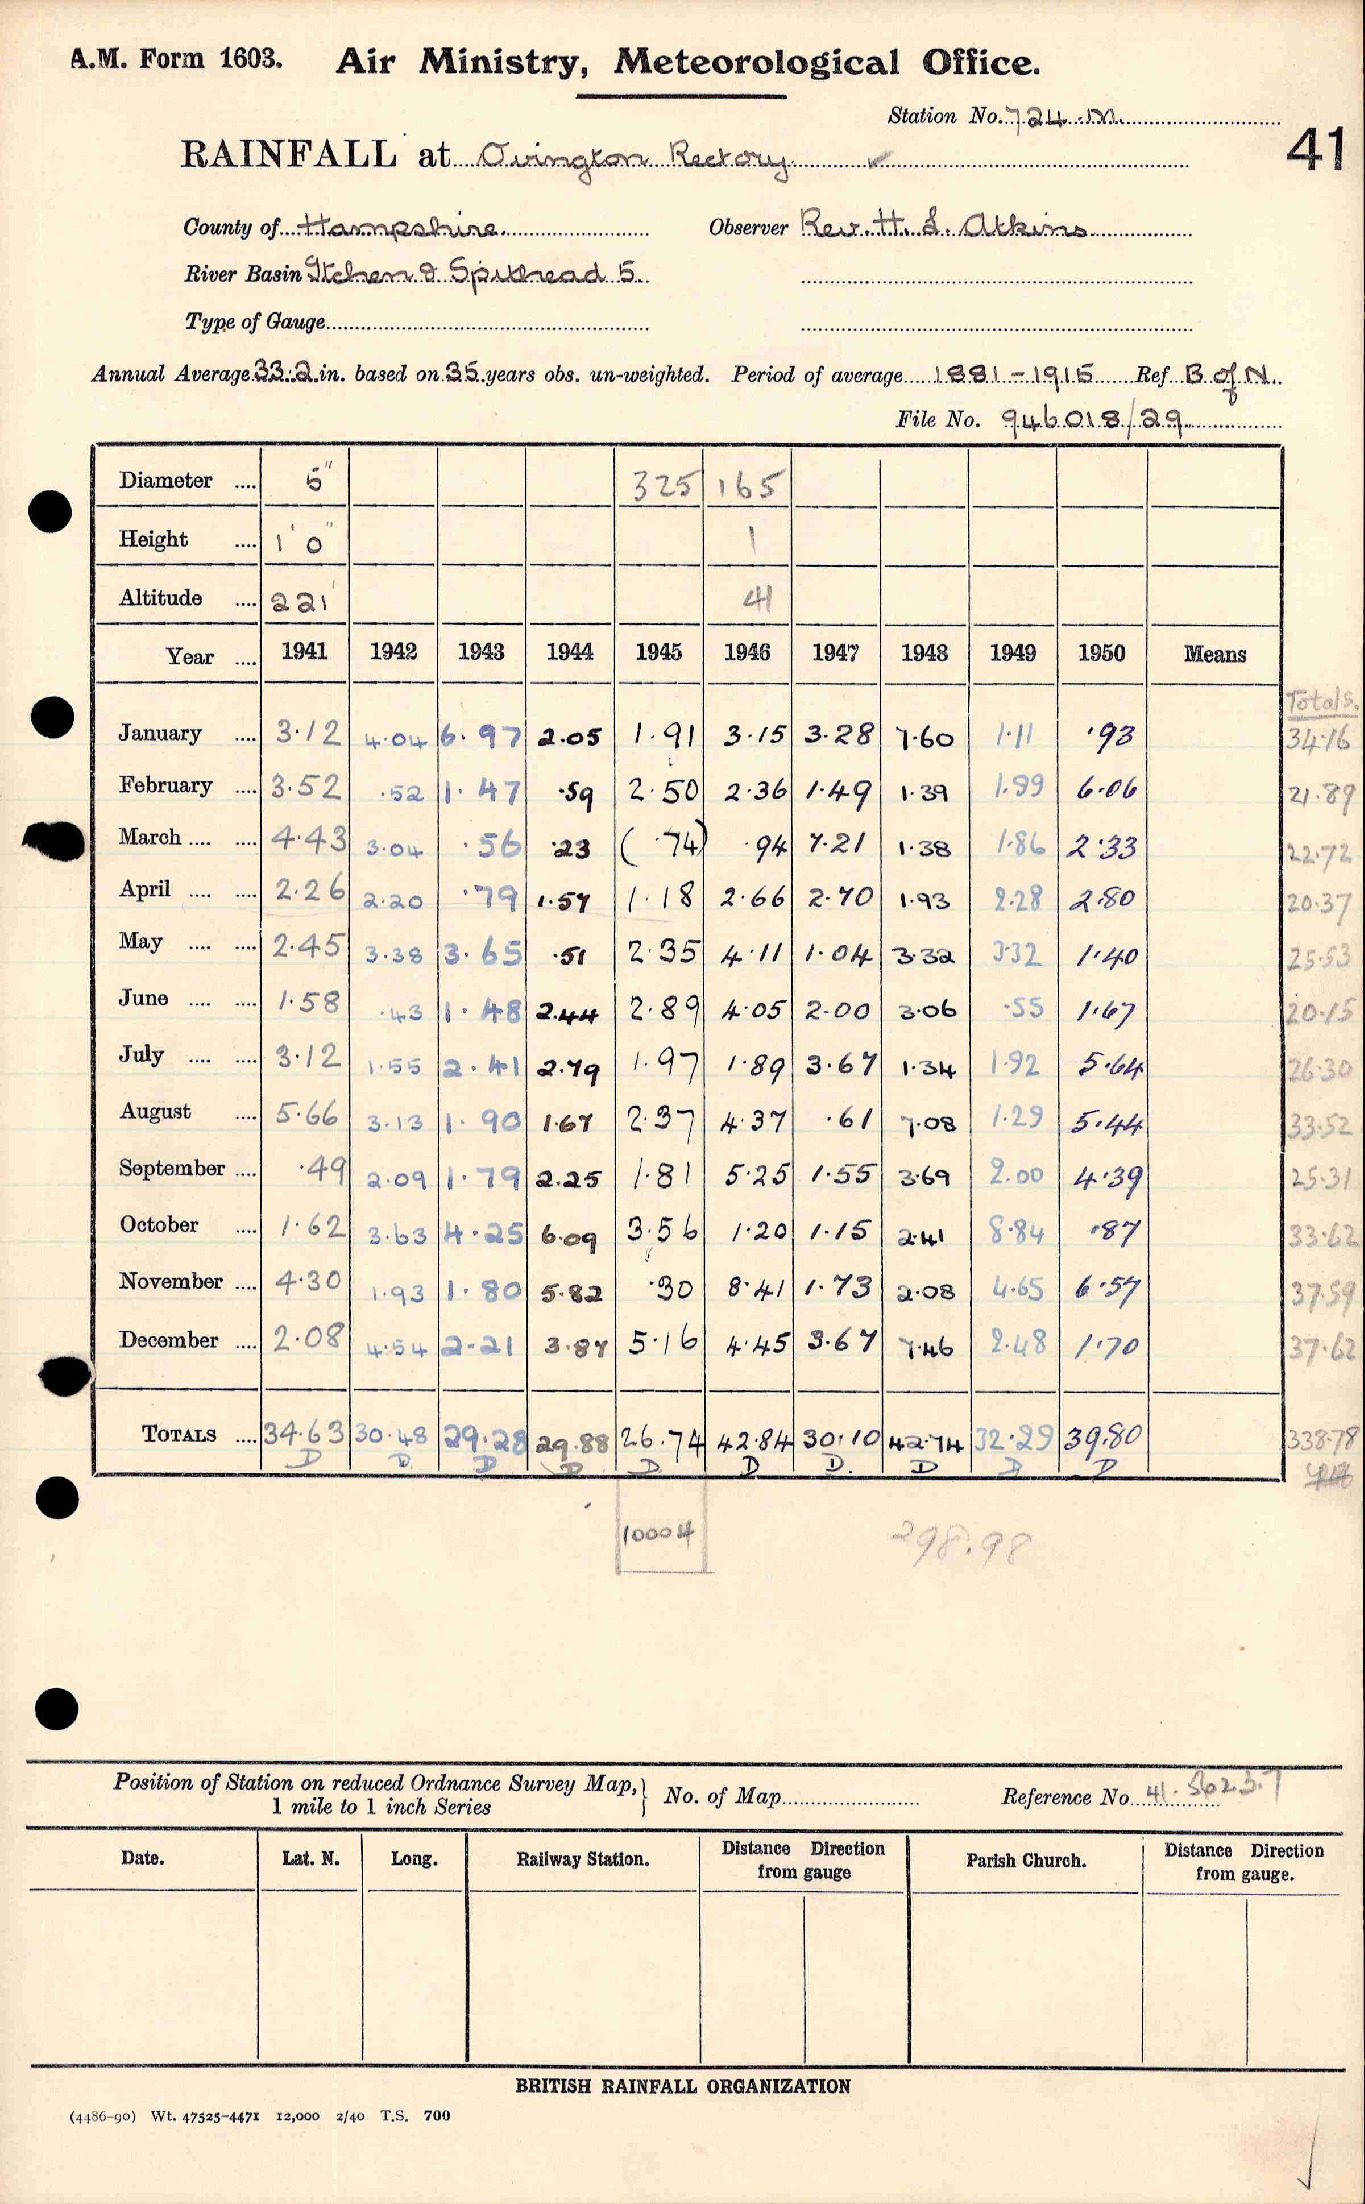 A.M. Form 1603. Air Ministry, Meteorological Office.
Station No. 724.M.
41
RAINFALL at Ovington Rectory ✓
County of Hampshire. Observer Rev. H. L. Atkins
River Basin Itchen & Spithead 5.
Type of Gauge
Annual Average 33.2 in. based on 35 years obs. un-weighted. Period of average 1881-1915 Ref B of N.
File No. 946018/29
Diameter .... 5" 325 165
Height .... 1' 0" 1
Altitude .... 221' 41
Year .... 1941 1942 1943 1944 1945 1946 1947 1948 1949 1950 Means
Totals.
January .... 3.12 4.04 6.97 2.05 1.91 3.15 3.28 7.60 1.11 .93 34.16
February .... 3.52 .52 1.47 .59 2.50 2.36 1.49 1.39 1.99 6.06 21.89
March .... .... 4.43 3.04 .56 .23 (.74) .94 7.21 1.38 1.86 2.33 22.72
April .... .... 2.26 2.20 .79 1.57 1.18 2.66 2.70 1.93 2.28 2.80 20.37
May .... .... 2.45 3.38 3.65 .51 2.35 4.11 1.04 3.32 3.32 1.40 25.53
June .... .... 1.58 .43 1.48 2.44 2.89 4.05 2.00 3.06 .55 1.67 20.15
July .... .... 3.12 1.55 2.41 2.79 1.97 1.89 3.67 1.34 1.92 5.64 26.30
August .... 5.66 3.13 1.90 1.67 2.37 4.37 .61 7.08 1.29 5.44 33.52
September .... .49 2.09 1.79 2.25 1.81 5.25 1.55 3.69 2.00 4.39 25.31
October .... 1.62 3.63 4.25 6.09 3.56 1.20 1.15 2.41 8.84 .87 33.62
November .... 4.30 1.93 1.80 5.82 .30 8.41 1.73 2.08 4.65 6.57 37.59
December .... 2.08 4.54 2.21 3.87 5.16 4.45 3.67 7.46 2.48 1.70 37.62
TOTALS .... 34.63 30.48 29.28 29.88 26.74 42.84 30.10 42.74 32.29 39.80 338.78
D D D D D D D. D D D
10004 298.98
Position of Station on reduced Ordnance Survey Map, 1 mile to 1 inch Series } No. of Map Reference No. 41.562317
Date. Lat. N. Long. Railway Station. Distance from gauge Direction Parish Church. Distance Direction from gauge.
BRITISH RAINFALL ORGANIZATION
(4486-90) Wt. 47525-4471 12,000 2/40 T.S. 700